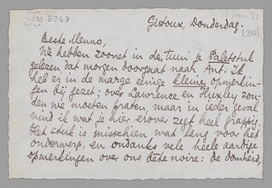 M 5243
Gistoux, Donderdag.
Beste Menno,
We hebben zoonet in den tuin je Paletstuk
gelezen dat morgen doorgaat naar Ant. Ik
heb er in de marge eenige kleine opmerkin-
gen bij gezet; over Lawrence en Huxley zou-
den we moeten praten, maar in ieder geval
vind ik wat je hier erover zegt heel grappig.
Het stuk is misschien wat lang voor het
onderwerp, en ondanks vele heele aardige
opmerkingen over ons bête noire: de domheid,